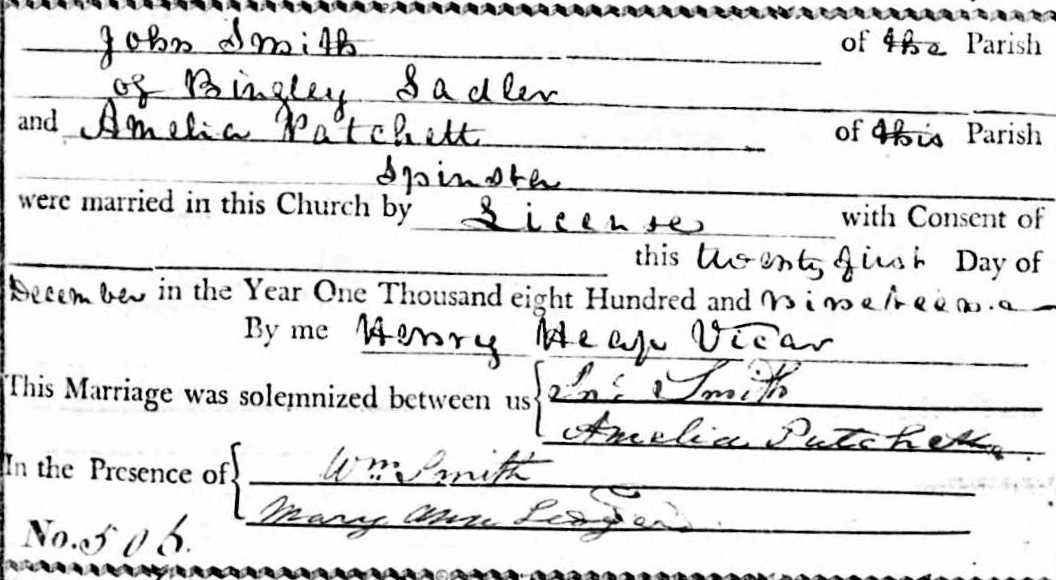 John Smith of the Parish
of Bingley Sadler
and Amelia Patchett of this Parish
Spinster
were married in this Church by License with Consent of
this twenty first Day of
December in the Year One Thousand eight Hundred and nineteen
By me Henry Heap Vicar
This Marriage was solemnized between us { Jnº Smith
Amelia Patchett
In the Presence of { Wm Smith
Mary Ann
No. 506.